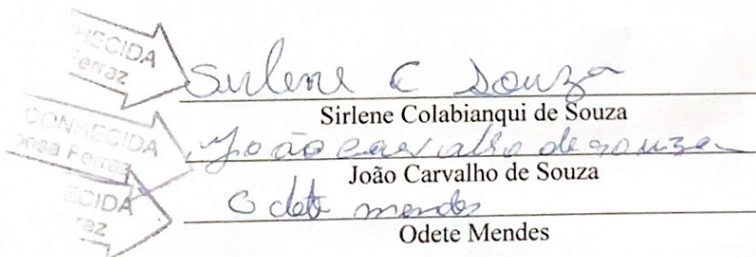 HECIDA
Ferraz
Sirlene C Souza
Sirlene Colabianqui de Souza
CONHECIDA
osa Ferraz
João Carvalho de Souza
João Carvalho de Souza
ECIDA
raz
Odete mendes
Odete Mendes